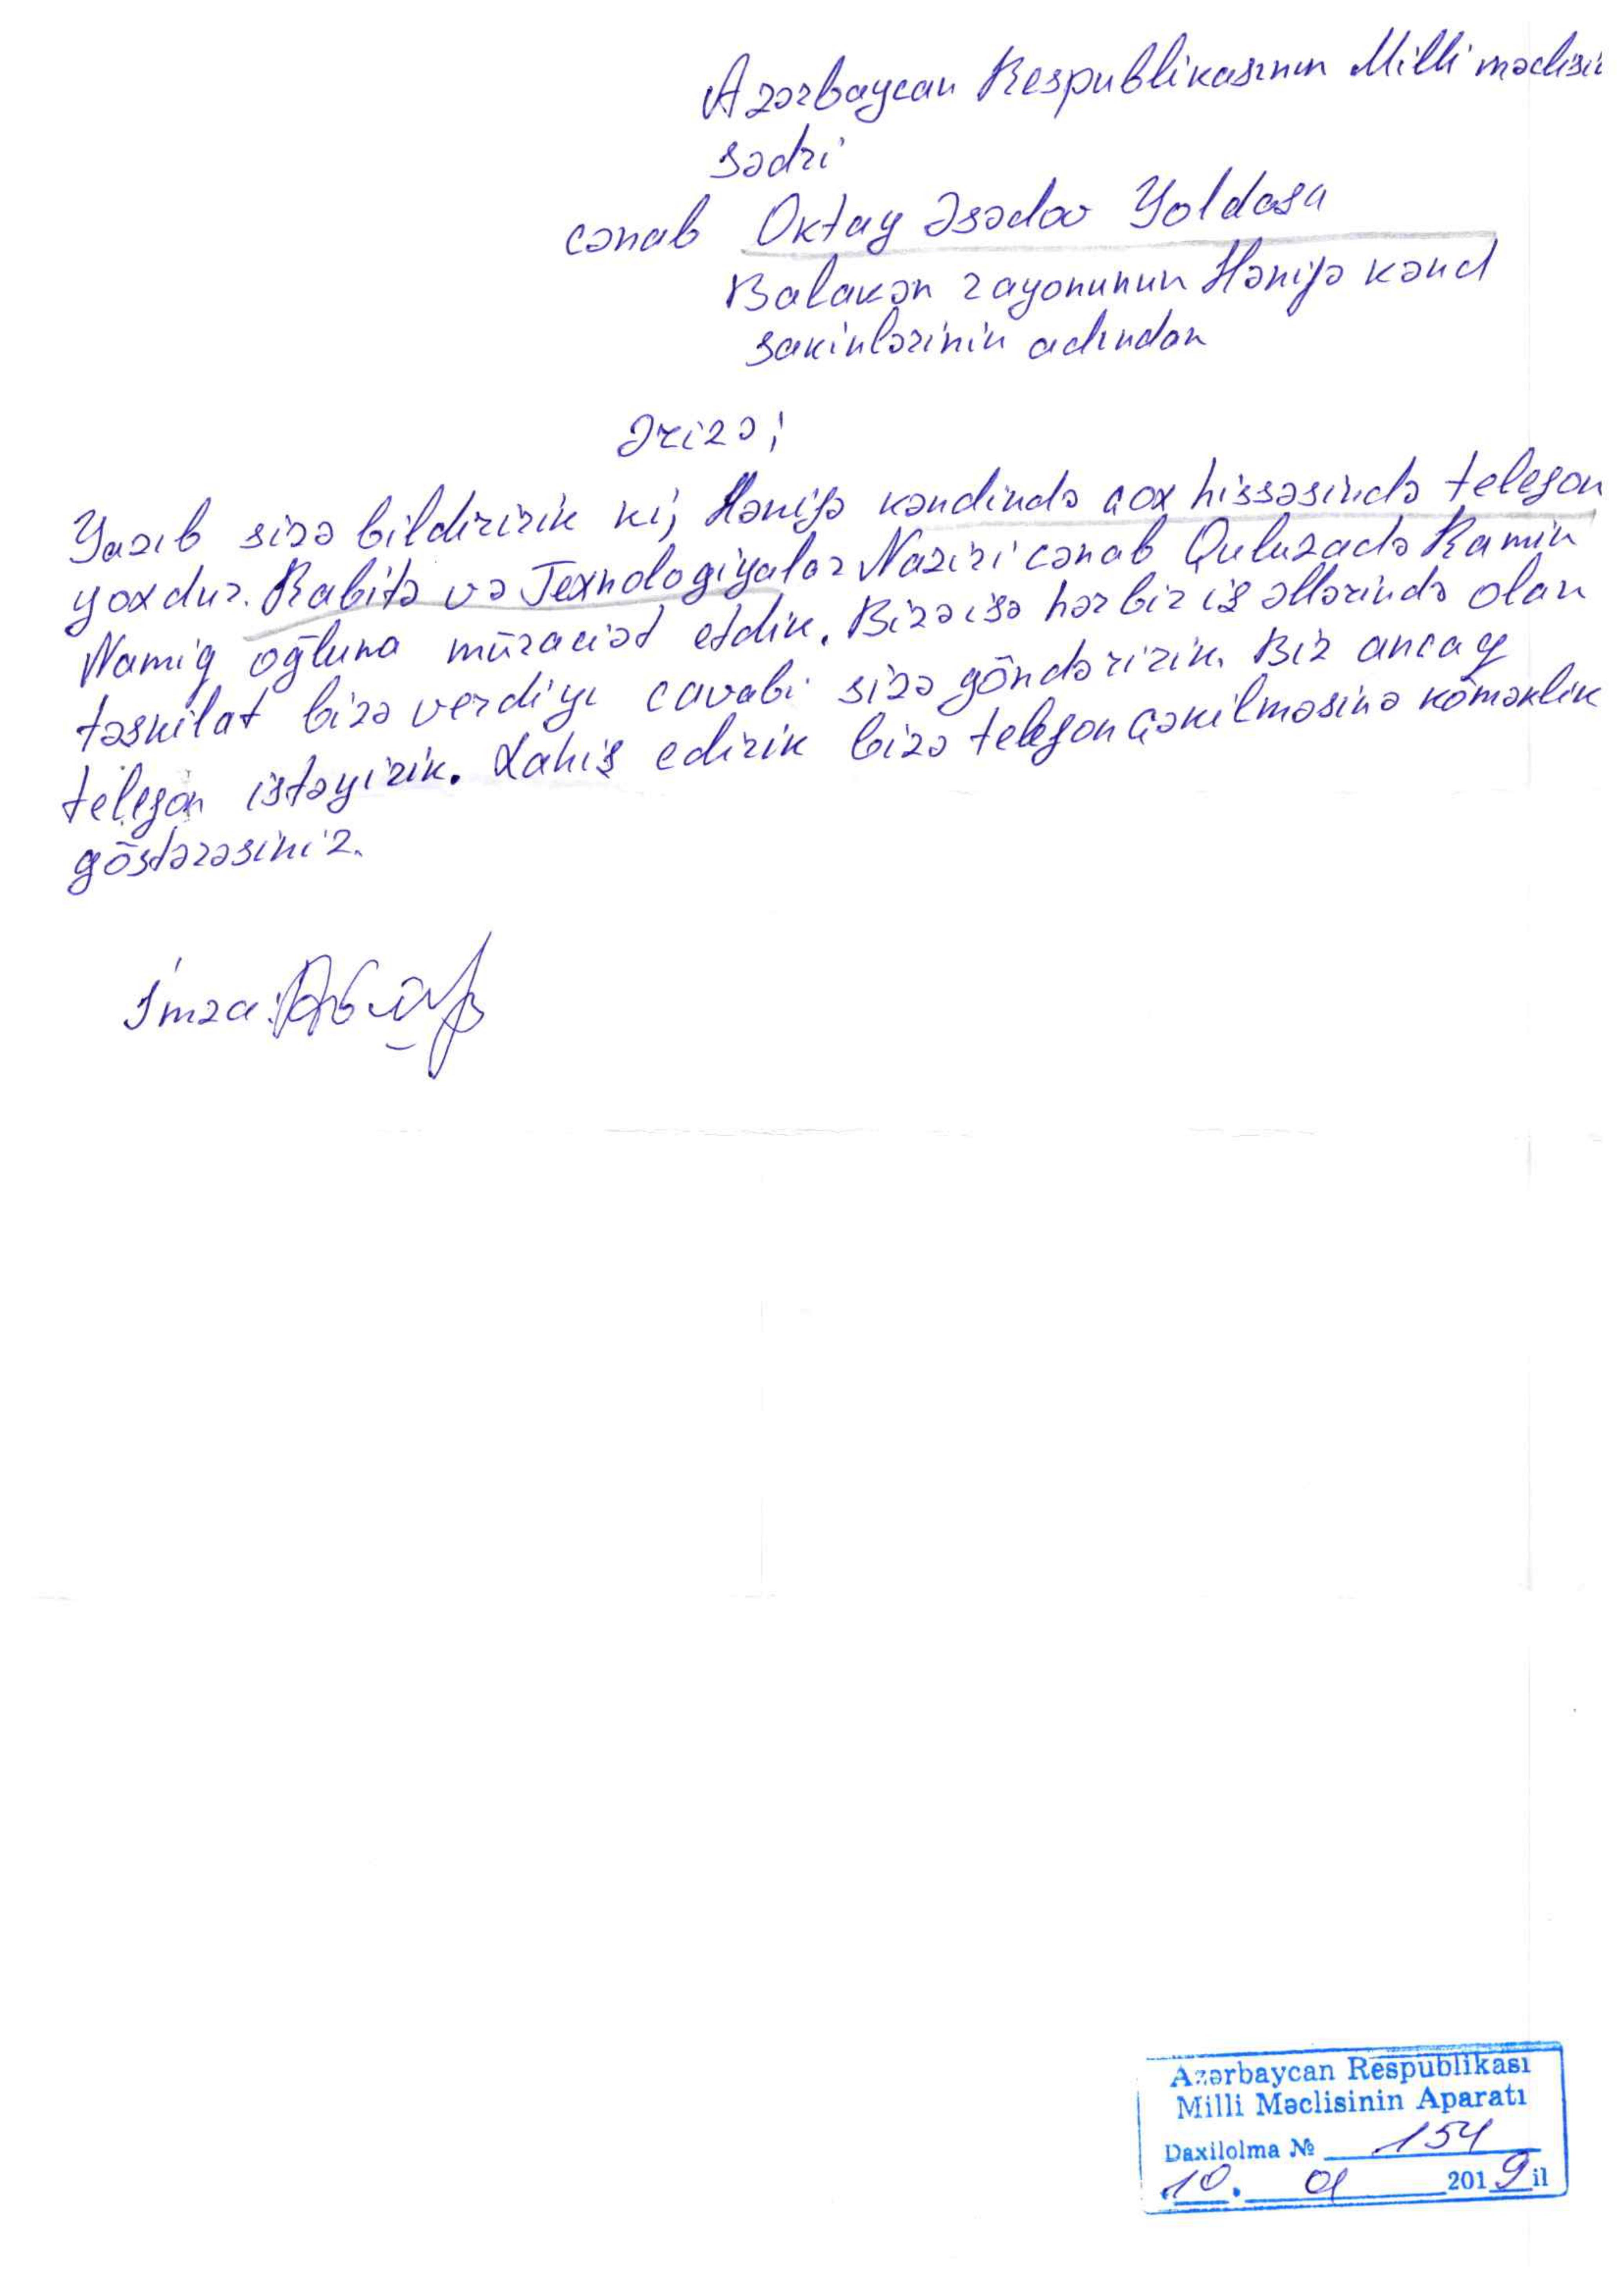 Azərbaycan Respublikasının Milli məclisi
sədri
cənab Oktay Əsədov Yoldaşa
Balakən rayonunun Hənifə kənd
sakinlərinin adından
Ərizə;
Yazıb sizə bildiririk ki, Hənifə kəndində çox hissəsində telefon
yoxdur. Rabitə və Texnologiyalar Naziri cənab Quluzadə Ramin
Namiq oğluna müraciət etdik. Bizə isə hər bir iş əllərində olan
təşkilat bizə verdiyi cavabı sizə göndəririk. Biz ancaq
telefon istəyirik. Xahiş edirik bizə telefon çəkilməsinə köməklik
göstərəsiniz.
İmza:
Azərbaycan Respublikası
Milli Məclisinin Aparatı
Daxilolma № 154
10. 01 2019 il